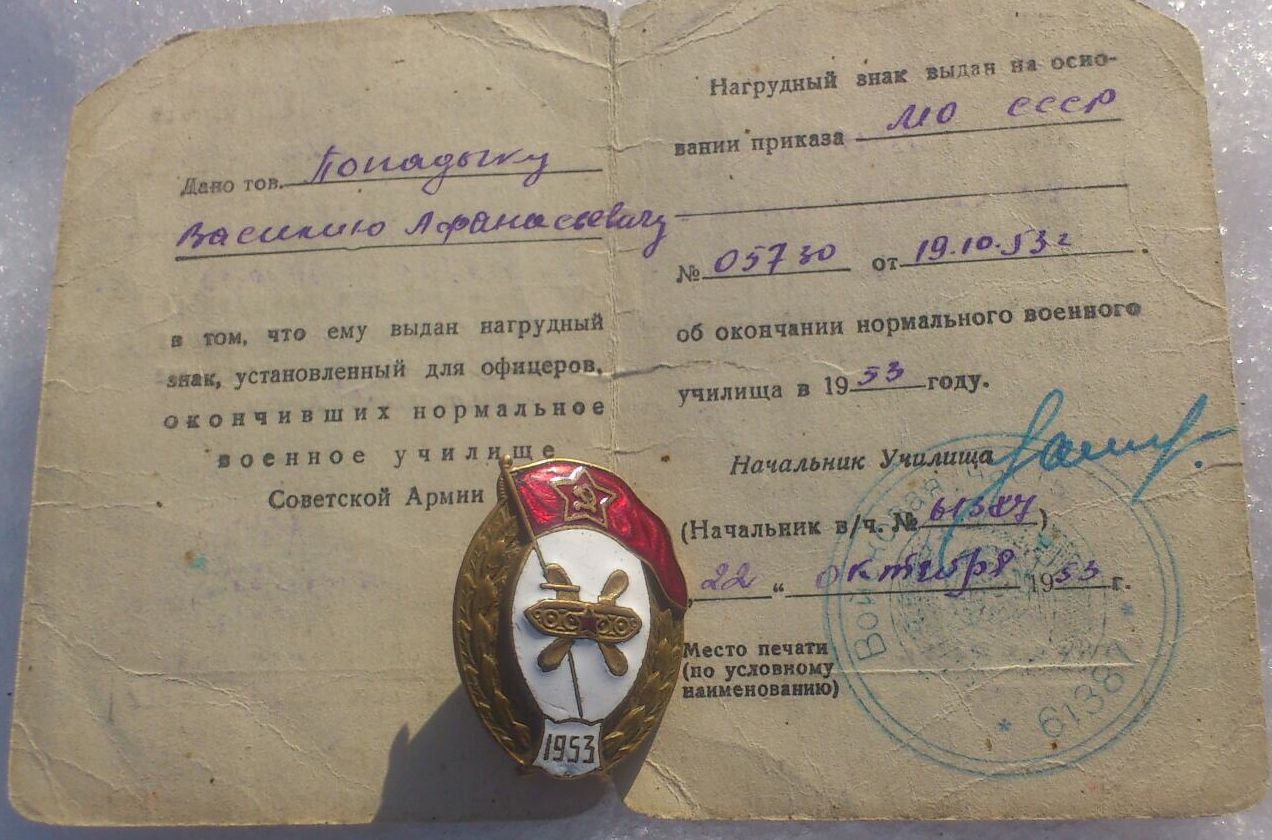 Дано тов. Попадыку
Василию Афанасьевичу
в том, что ему выдан нагрудный
знак, установленный для офицеров,
окончивших нормальное
военное училище
Советской Армии
1953
Нагрудный знак выдан на осно-
вании приказа МО СССР
№ 05730 от 19.10.53г.
об окончании нормального военного
училища в 1953 году.
Начальник Училища
(Начальник в/ч. № 61387)
„22“ октября 1953 г.
Место печати
(по условному
наименованию)
Войсковая часть * 61387 *